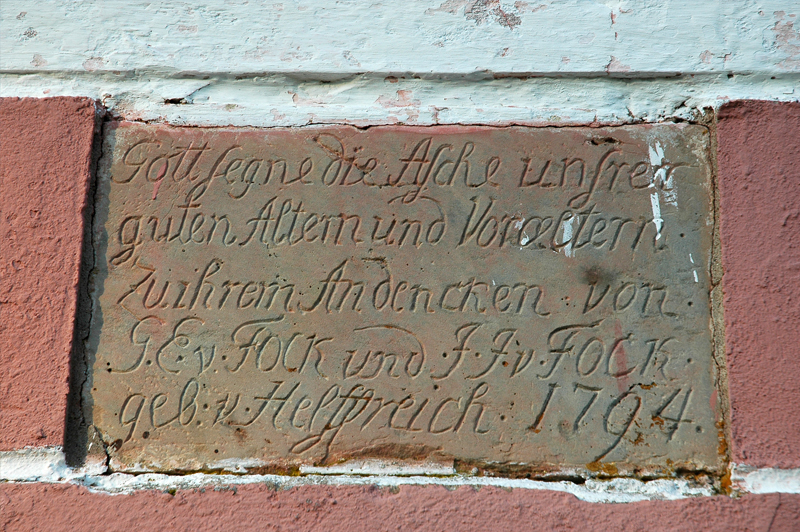 Gott segne die Asche unsrer
guten Altern und Voræltern.
zu ihrem Andencken : von :
G. E. v. FOCK und : J. J. v. FOCK.
geb: v. Helffreich. 1794.